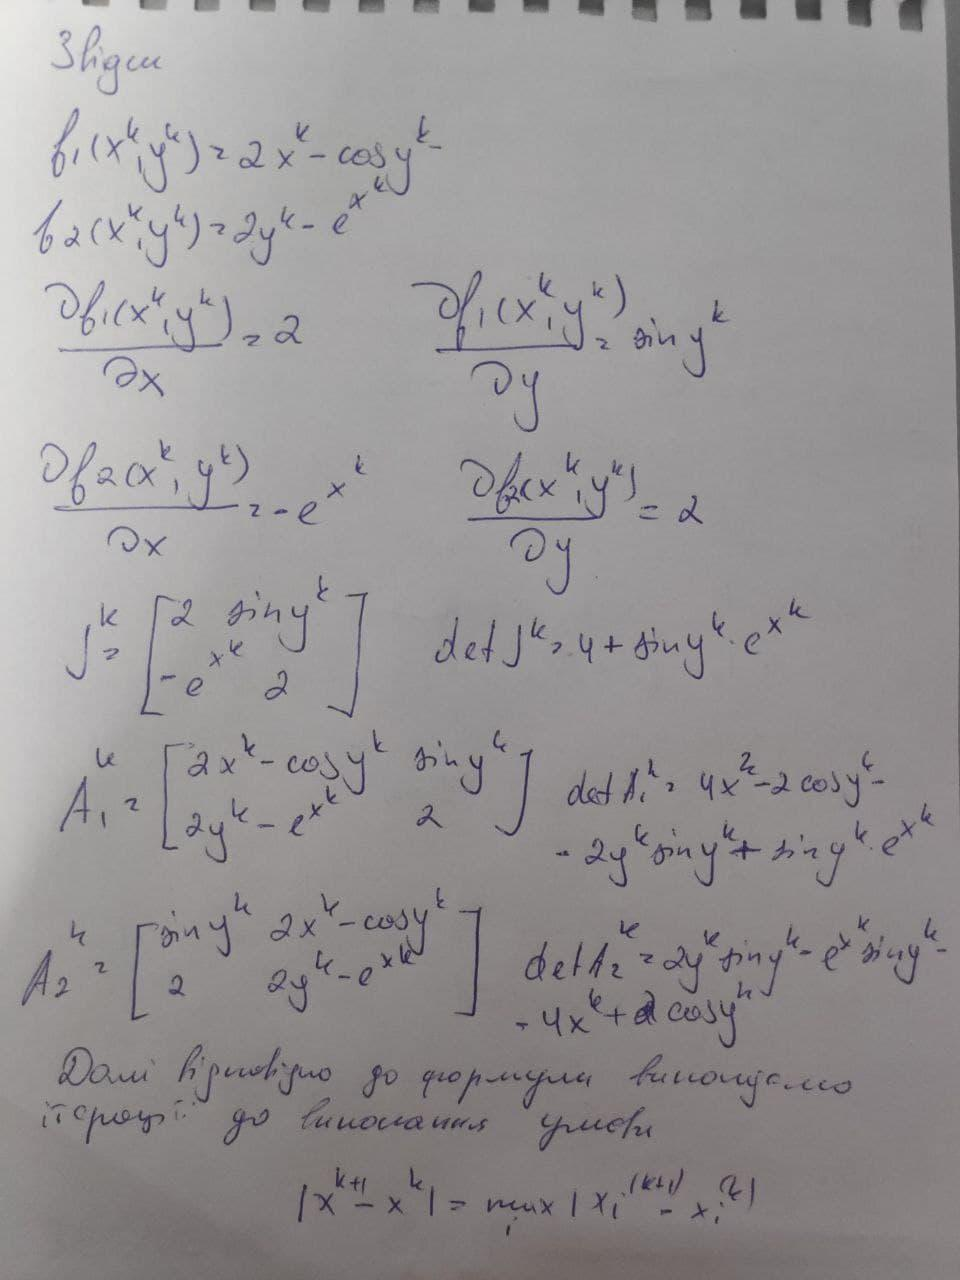 Звідси
f₁(xᵏ, yᵏ) = 2xᵏ - cos yᵏ -
f₂(xᵏ, yᵏ) = 2yᵏ - e^{xᵏ}
∂f₁(xᵏ, yᵏ)/∂x = 2 ∂f₁(xᵏ, yᵏ)/∂y = sin yᵏ
∂f₂(xᵏ, yᵏ)/∂x = -e^{xᵏ} ∂f₂(xᵏ, yᵏ)/∂y = 2
Jᵏ = [2 sin yᵏ; -e^{xᵏ} 2] det Jᵏ = 4 + sin yᵏ · e^{xᵏ}
A₁ᵏ = [2xᵏ - cos yᵏ sin yᵏ; 2yᵏ - e^{xᵏ} 2] det A₁ᵏ = 4xᵏ - 2 cos yᵏ -
- 2yᵏ sin yᵏ + sin yᵏ · e^{xᵏ}
A₂ᵏ = [sin yᵏ 2xᵏ - cos yᵏ; 2 2yᵏ - e^{xᵏ}] det A₂ᵏ = 2yᵏ sin yᵏ - e^{xᵏ} sin yᵏ -
- 4xᵏ + 2 cos yᵏ
Далі відповідно до формули виконуємо
ітерації до виконання умови
|x^{k+1} - x^k| = max_i |x_i^{(k+1)} - x_i^{(k)}|